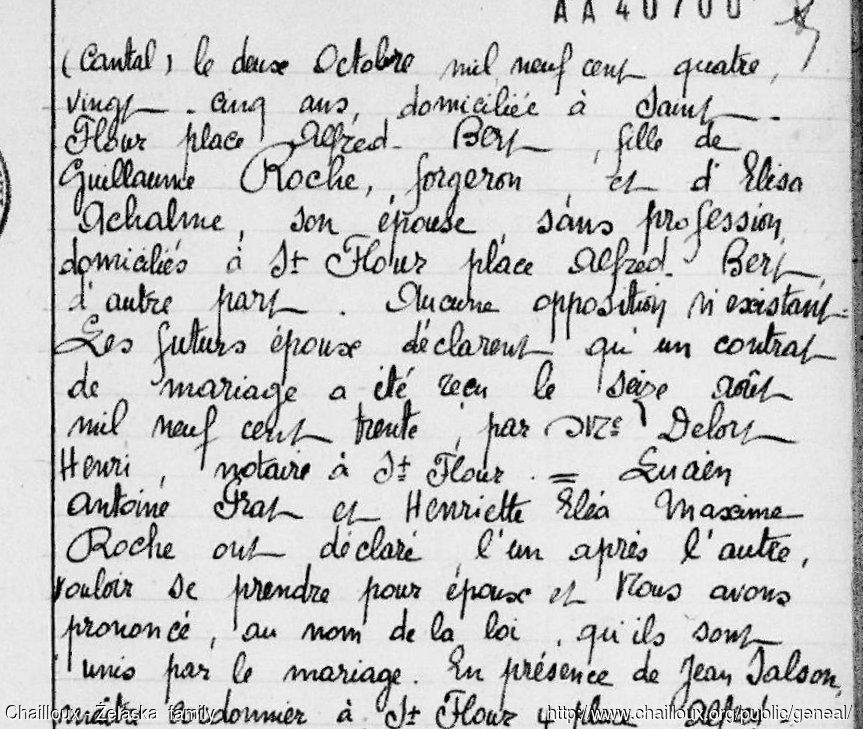 AA 40700
(Cantal) le deux Octobre mil neuf cent quatre,
vingt - cinq ans, domiciliée à Saint -
Flour place Alfred - Bert, fille de
Guillaume Roche, forgeron et d'Elisa
Achalme, son épouse sans profession,
domiciliés à St Flour place Alfred - Bert,
d'autre part. Aucune opposition n'existant=
Les futurs époux déclarent qu'un contrat
de mariage a été reçu le seize août
mil neuf cent trente, par Me Delort
Henri, notaire à St Flour. = Lucien
Antoine Prat et Henriette Eléa Maxime
Roche ont déclaré l'un après l'autre,
vouloir se prendre pour époux et Nous avons
prononcé, au nom de la loi, qu'ils sont
unis par le mariage. En présence de Jean Salson,
cordonnier à St Flour 4 place Alfred
Chailloux - Zelaska family
http://www.chailloux.org/public/geneal/